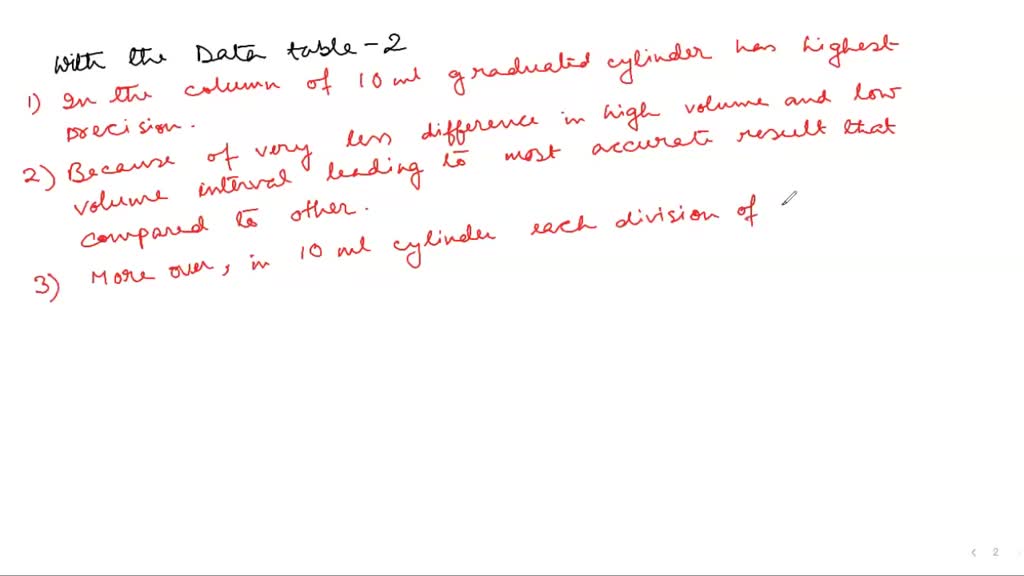 With the Data table-2
1) In the column of 10 ml graduated cylinder has highest
precision.
2) Because of very less difference in high volume and low
volume interval leading to most accurate result that
compared to other.
3) More over, in 10 ml cylinder each division of
< 2